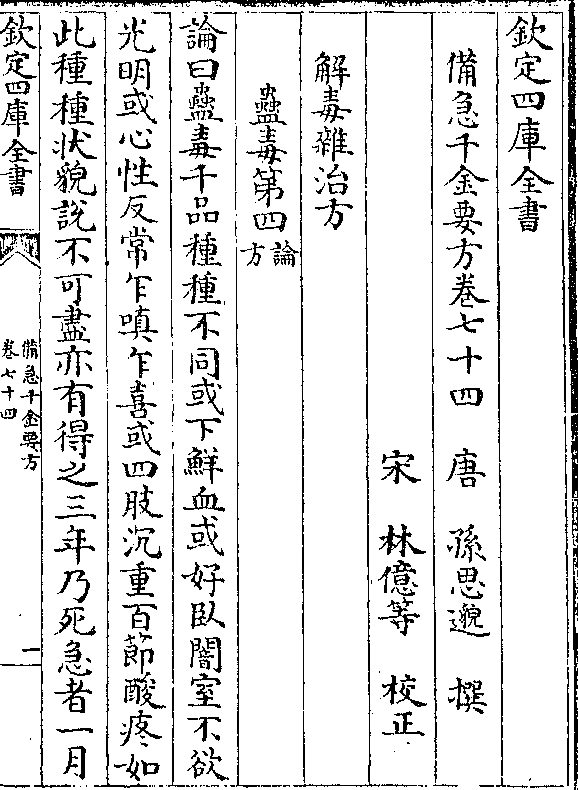 欽定四庫全書
備急千金要方卷七十四　唐　孫思邈　撰
宋　林億等　校正
解毒雜治方
蠱毒第四論方
論曰蠱毒千品種種不同或下鮮血或好臥闇室不欲
光明或心性反常乍嗔乍喜或四肢沉重百節酸疼如
此種種狀貌說不可盡亦有得之三年乃死急者一月
欽定四庫全書
備急千金要方
卷七十四
一